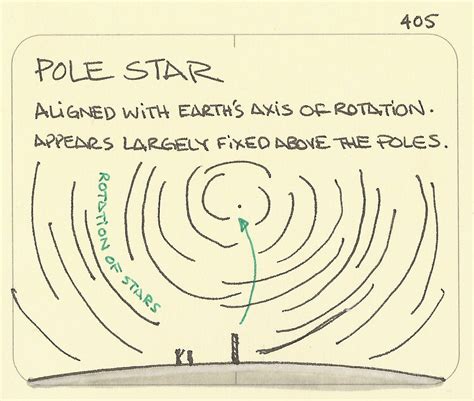 405
POLE STAR
ALIGNED WITH EARTH'S AXIS OF ROTATION.
APPEARS LARGELY FIXED ABOVE THE POLES.
ROTATION OF STARS